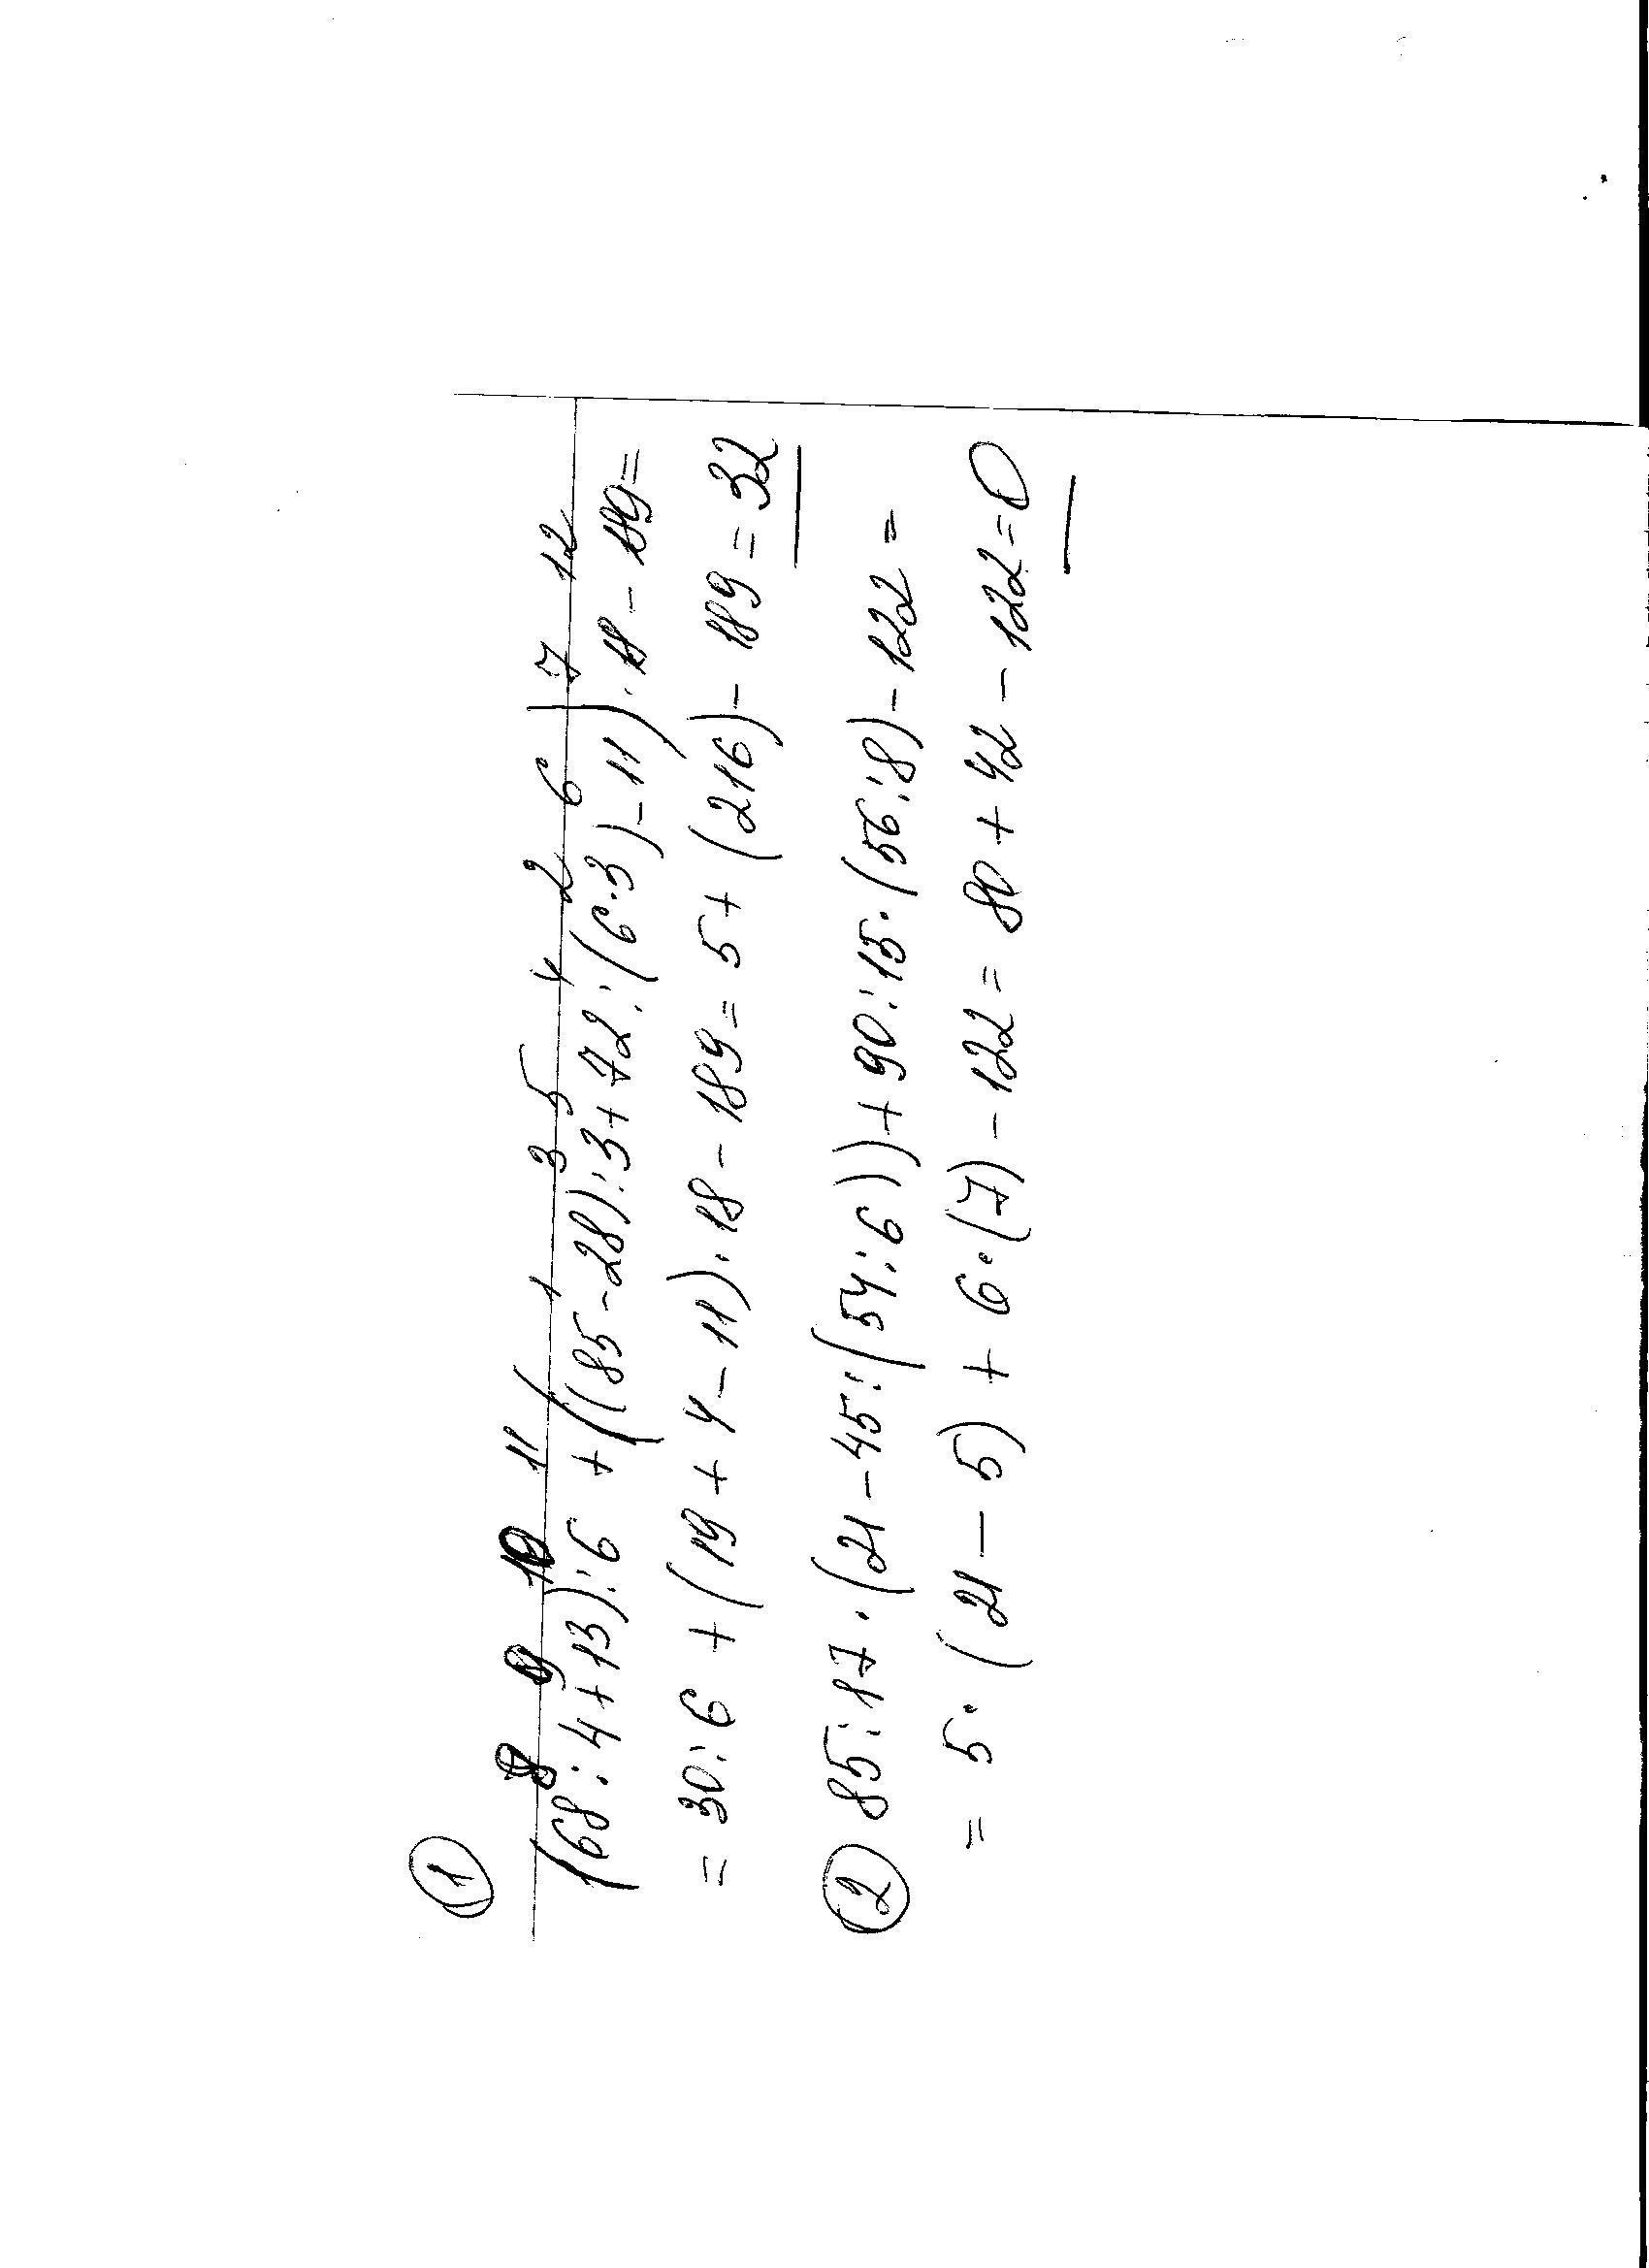 ①
8 9 10 11 ( 1 3 5 4 2 6 ) 7 12
(68:4+13):6 + ((85-28):3+72:(6·3)-11)·18-189=
= 30:6 + (19+4-11)·18-189=5+(216)-189=32
② 85:17·(21-45:(54:6))+90:15·(56:8)-122=
= 5·(21-5)+6·(7)-122=80+42-122=0